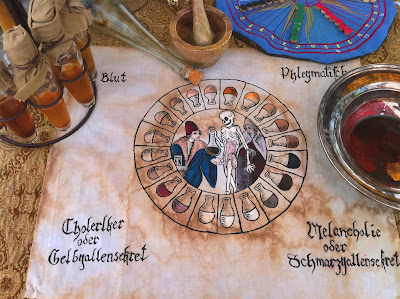 Blut
Phlegmatik
Choleriker
oder
Gelbgallensekret
Melancholie
oder
Schwarzgallensekret